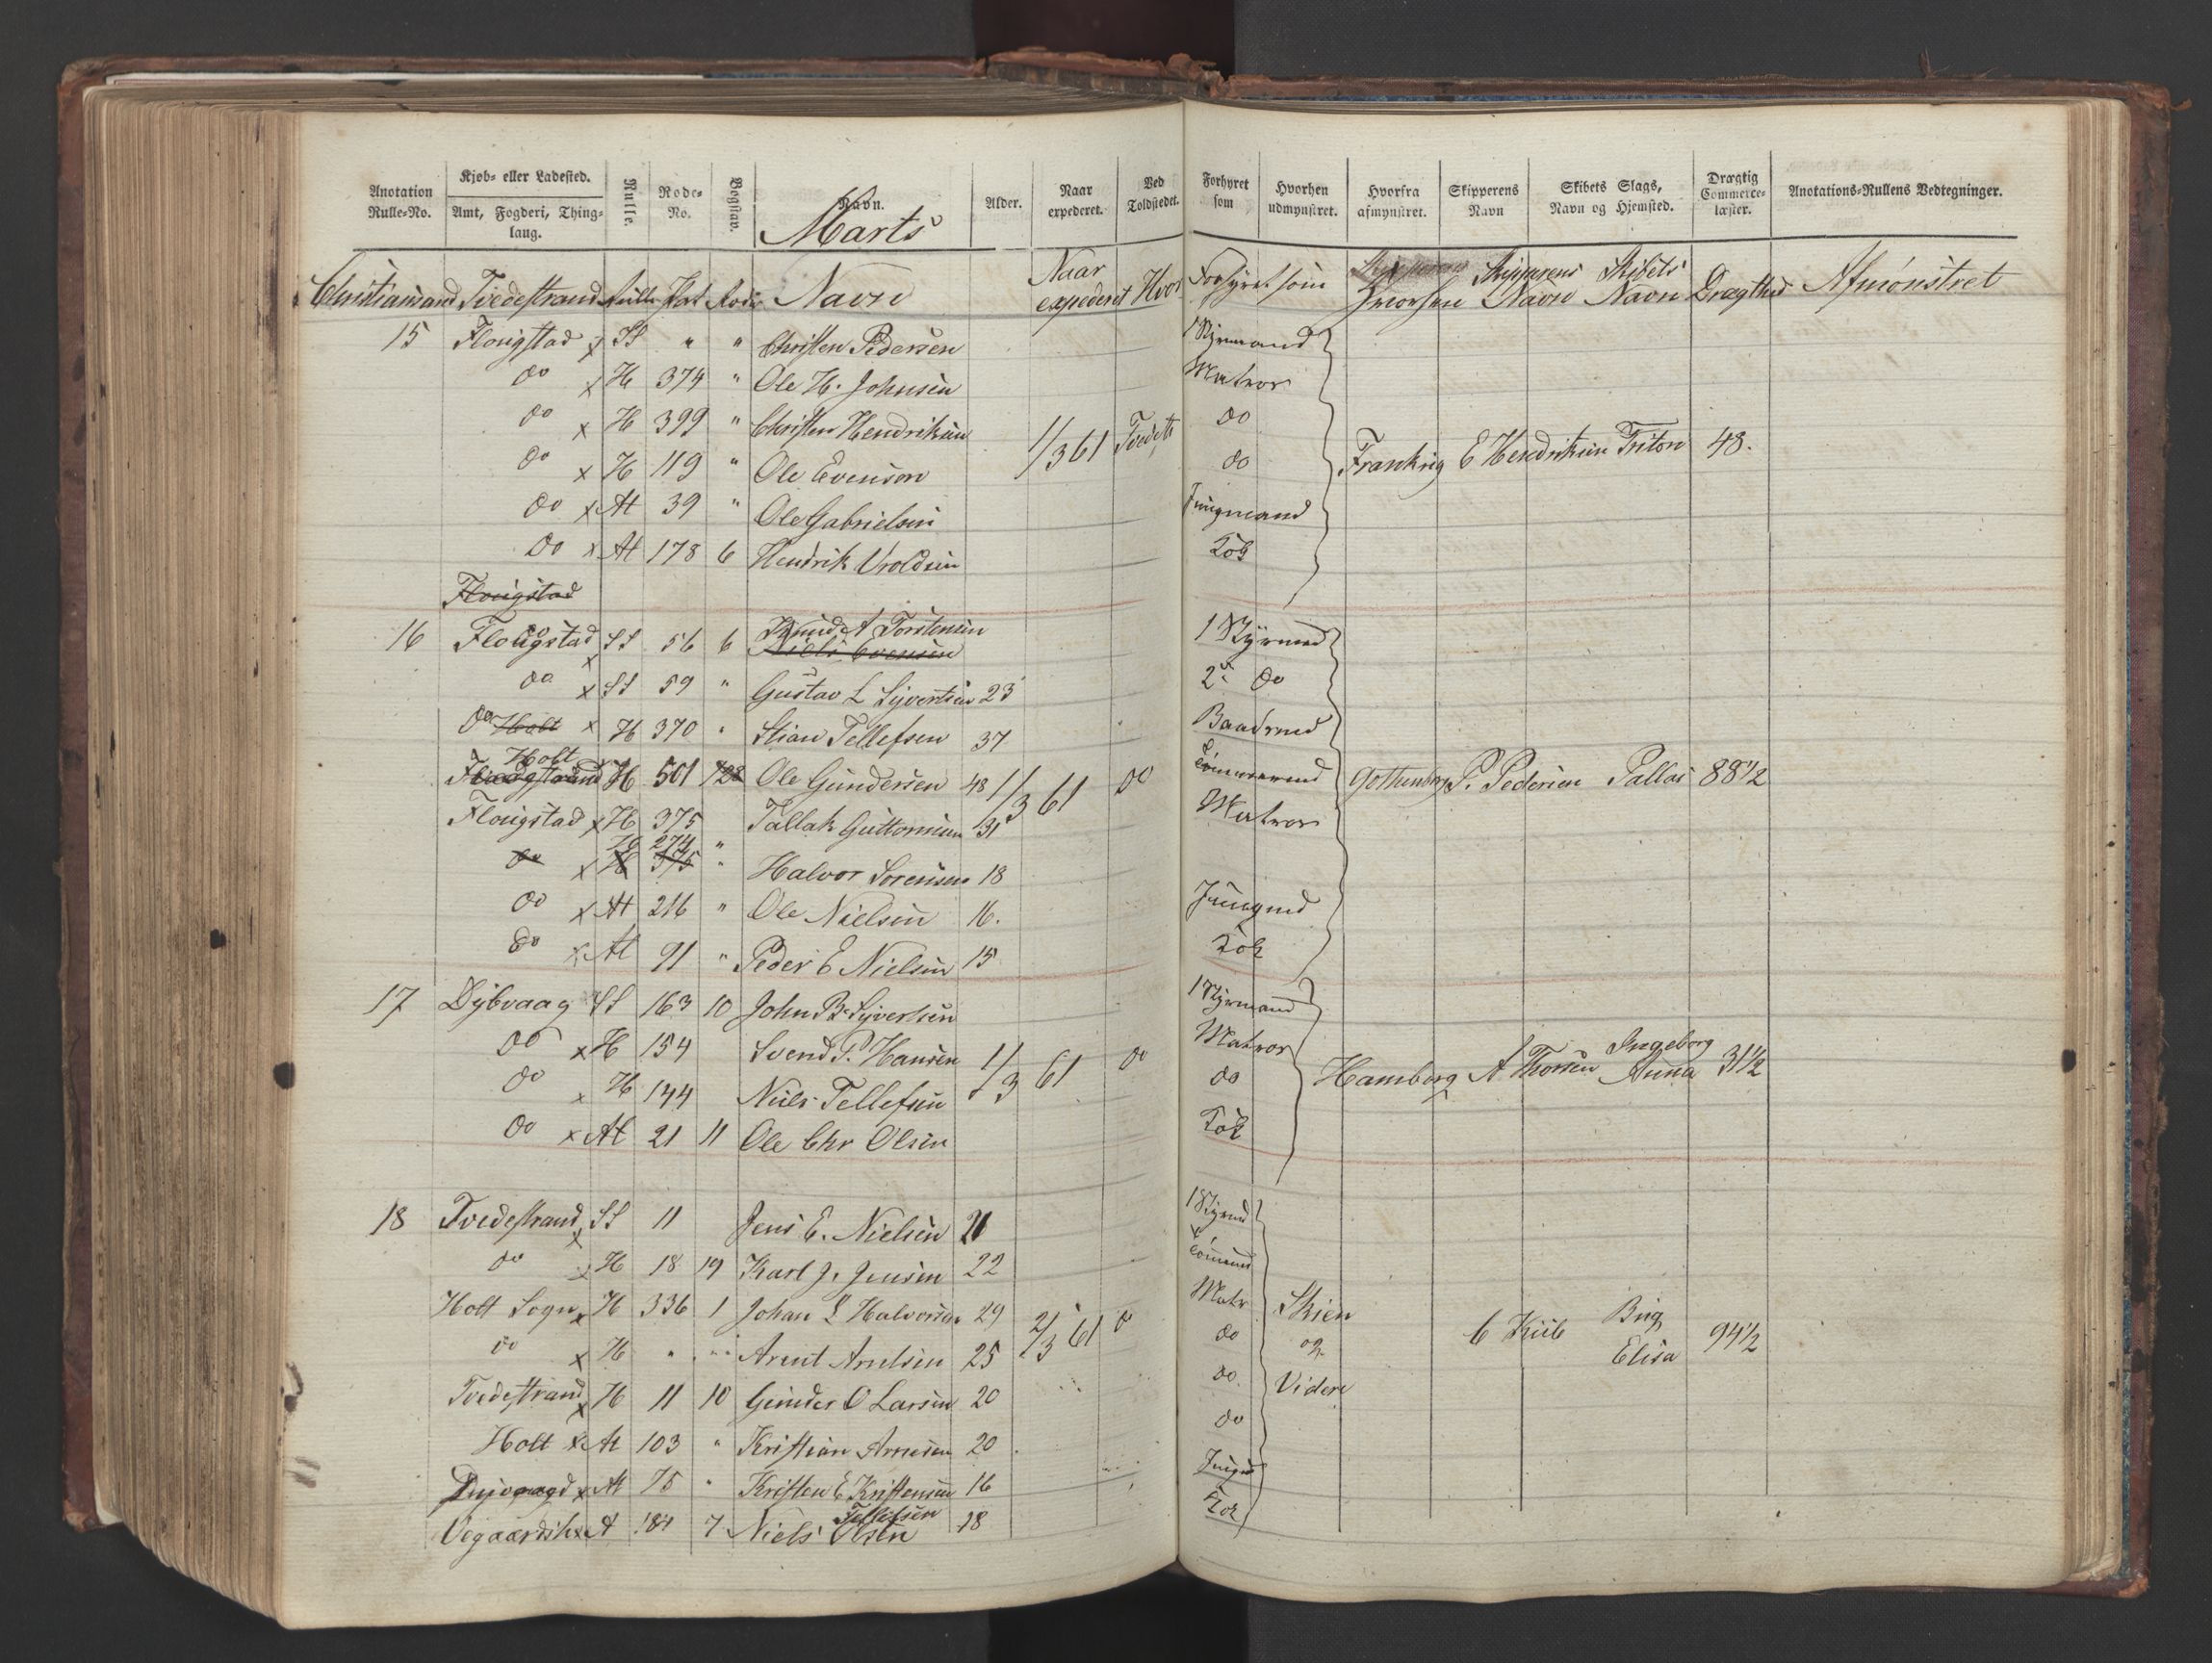 Anotation Rulle-No. Kjøb- eller Ladested. Amt, Fogderi, Thinglaug. Rulle. Rode-No. Bogstav. Navn. Alder. Naar expederet. Ved Toldstedet. Forhyret som Hvorhen udmynstret. Hvorfra afmynstret. Skipperens Navn Skibets Slags, Navn og Hjemsted. Drægtig Commerce-læster. Anotations-Rullens Vedtegninger.
Marts
Christiansand Tvedestrand Rulle Pat Rode Navn Naar expederet Hvor Forhyret som Hvorhen Skipperens Navn Skibets Navn Drægthed Afmønstret
15 Flougstad x SS " " Christen Pedersen 1 Styrmand
do x H 374 " Ole H. Johnsen Matros
do x H 399 " Christen Hendriksen 1/3 61 Tvedst do
do x H 119 " Ole Evensen do Frankrig E Hendriksen Triton 48.
do x At 39 " Ole Gabrielsen Jungmand
do x At 178 6 Hendrik Uroldsen Kok
Flougstad
16 Flougstad x SS 56 6 Knud A Torstensen 1 Styrmd
Niels Evensen
do x SS 59 " Gustav L Syvertsen 23 2d do
do Holt x H 370 " Stian Tellefsen 37 Baadsmd
Holt
Flougstad H 501 128 Ole Gundersen 48 1/3 61 do Tømmermd Gothenborg P. Pedersen Pallas 88 1/2
Flougstad x H 375 Tallak Guttormsen 31 Matros
274 "
do x H 375 " Halvor Sorensen 18
do x At 216 " Ole Nielsen 16. Jungmd
do x At 91 " Peder E Nielsen 15 Kok
17 Dybvaag SS 163 10 John B Syvertsen 1 Styrmand
do x H 154 Svend P. Hansen 1/3 61 do Matros
do x H 144 Niels Tellefsen do Hamborg A Thorsen Ingeborg Anna 31 1/2
do x At 21 11 Ole Chr Olsen Kok
18 Tvedestrand x SS 11 Jens E. Nielsen 21 1 Styrmd
do x H 18 19 Karl J. Jensen 22 Tømmmd
Holt Sogn x H 336 1 Johan L Halvorsen 29 2/3 61 do Matr Skien
do x H " " Arent Arntsen 25 do og C Kiib Brig Elisa 94 1/2
Tvedestrand x H 11 10 Gunder O Larsen 20 do. Videre
Holt x At 103 " Kristian Arnesen 20 do
Dypvaag x At 75 " Kristen E Kristensen 16 Jungm
Tellefsen
Vegaardsh x A 184 7 Niels Olsen 18 Kok